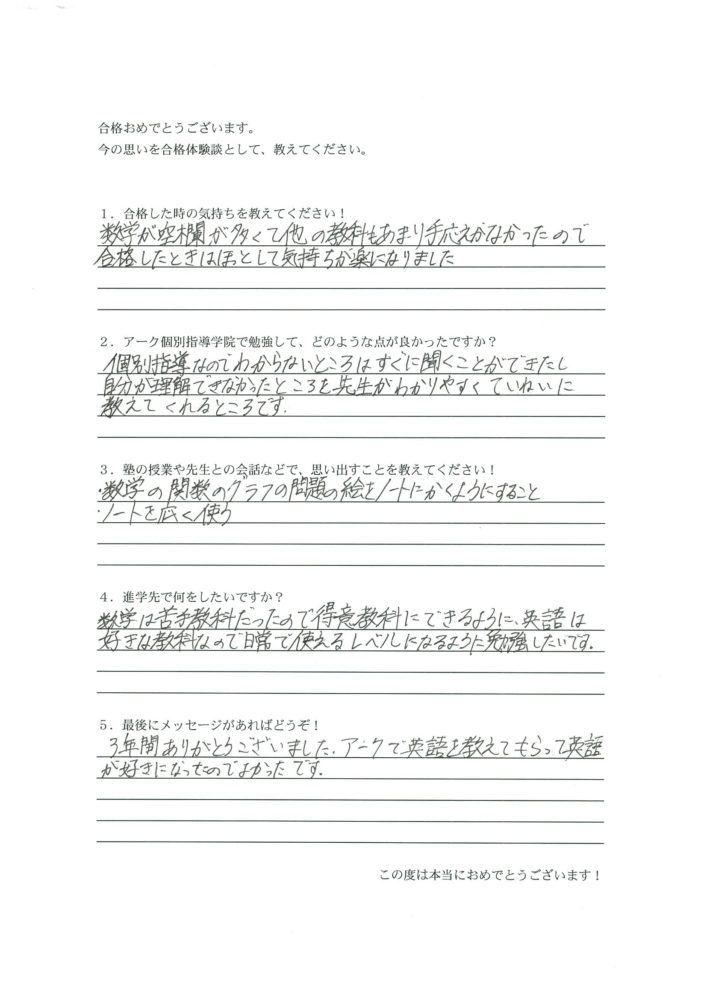 合格おめでとうございます。
今の思いを合格体験談として、教えてください。
1．合格した時の気持ちを教えてください！
数学が空欄が多くて他の教科もあまり手応えがなかったので
合格したときはほっとして気持ちが楽になりました
2．アーク個別指導学院で勉強して、どのような点が良かったですか？
個別指導なのでわからないところはすぐに聞くことができたし
自分が理解できなかったところを先生がわかりやすくていねいに
教えてくれるところです.
3．塾の授業や先生との会話などで、思い出すことを教えてください！
・数学の関数のグラフの問題の絵をノートにかくようにすること
・ノートを広く使う
4．進学先で何をしたいですか？
数学は苦手教科だったので得意教科にできるように、英語は
好きな教科なので日常で使えるレベルになるように勉強したいです.
5．最後にメッセージがあればどうぞ！
3年間ありがとうございました. アークで英語を教えてもらって英語
が好きになったのでよかったです.
この度は本当におめでとうございます！